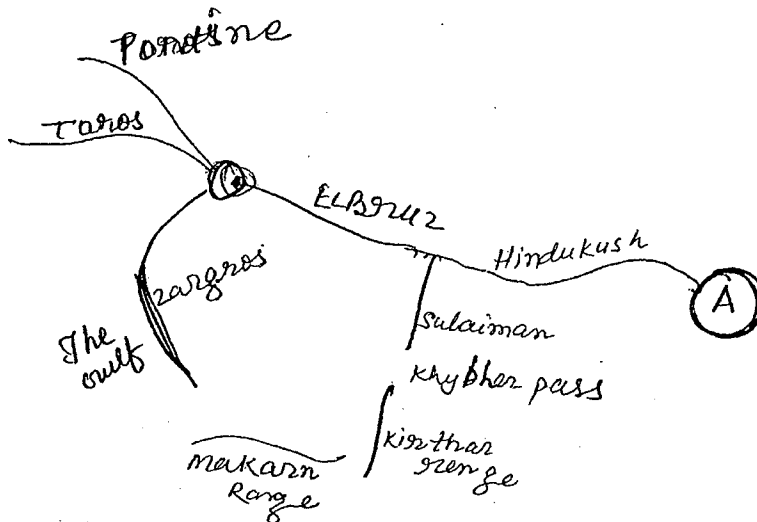 Pontine
Taros
ELBruz
Hindukush
A
zargros
The
Gulf
Sulaiman
Khybher pass
Kirthar
renge
Makarn
Range